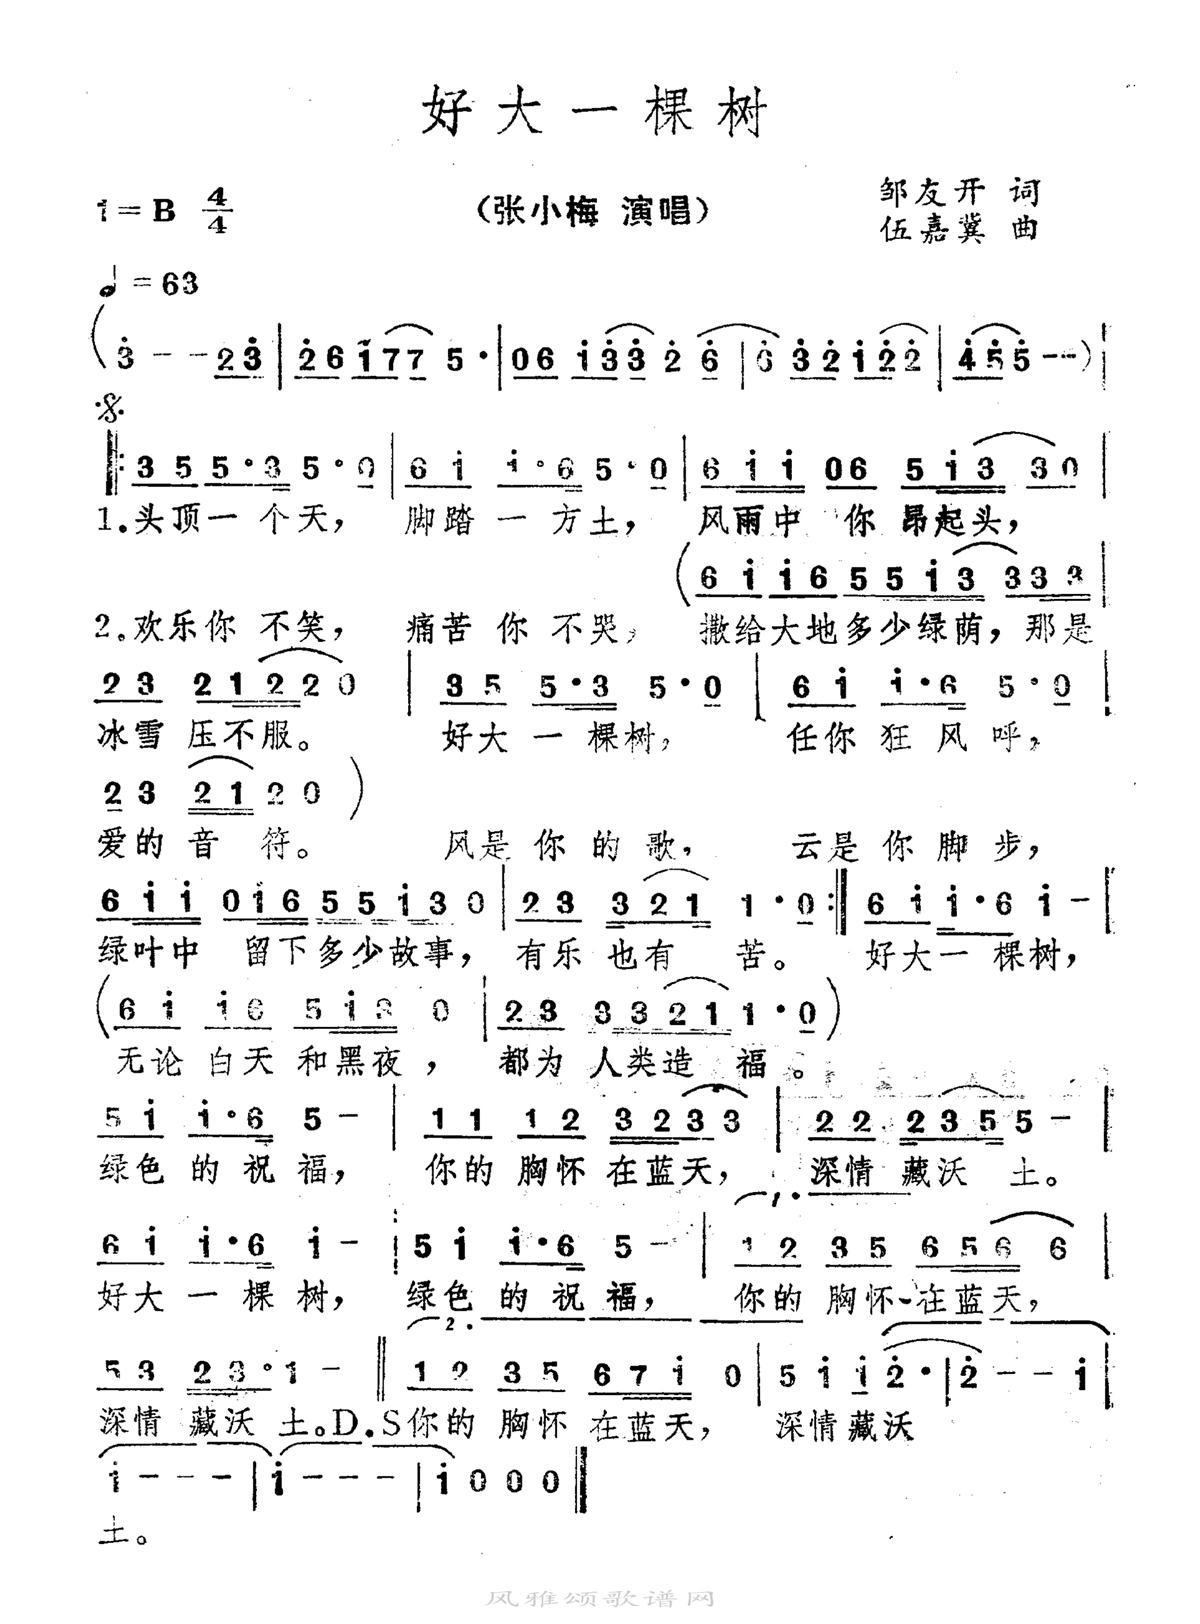 好大一棵树
1=B 4/4
(张小梅 演唱)
邹友开 词
伍嘉冀 曲
♩=63
(3̇ - - 2̇3̇ | 2̇6 1̇77 5· | 06 1̇3̇3̇ 2̇ 6̇ | 6̇ 3̇2̇1̇2̇2̇ | 4̇5̇5̇ - -)
𝄋
‖: 35 5·3 5·0 | 61̇ 1̇·6 5·0 | 61̇1̇ 06 51̇3̇ 3̇30 |
1.头顶一个天, 脚踏一方土, 风雨中 你 昂起头,
(61̇ 1̇6 551̇3 333
2.欢乐你 不笑, 痛苦 你 不哭, 撒给大地多少绿荫,那是
23 2122 0 | 35 5·3 5·0 | 61̇ 1̇·6 5·0 |
冰雪 压不服。 好大 一 棵树, 任你 狂 风 呼,
23 21 20)
爱的 音 符。 风是 你 的 歌, 云是 你 脚 步,
61̇1̇ 01̇6 551̇30 | 23 321 1·0 :‖ 61̇ 1̇·6 1̇ - |
绿叶中 留下多少故事, 有乐 也有 苦。 好大一 棵树,
(61̇ 1̇6 51̇3 0 | 23 33211·0)
无论 白天 和黑夜, 都为 人类造 福。
51̇ 1̇·6 5- | 11 12 3233 | 22 2355-
绿色 的 祝 福, 你的 胸怀 在蓝天, 深情 藏沃 土。
1.
61̇ 1̇·6 1̇- | 51̇ 1̇·6 5- | 12 35 656 6
好大 一 棵 树, 绿色 的 祝 福, 你的 胸怀 在蓝天,
2.
53 23·1- ‖ 12 35 671̇ 0 | 51̇ 1̇2̇· | 2̇ - - 1̇ |
深情 藏沃 土。D.S你的 胸怀 在蓝天, 深情藏沃
1̇ - - - | 1̇ - - - | 1̇000 ‖
土。
风雅颂歌谱网